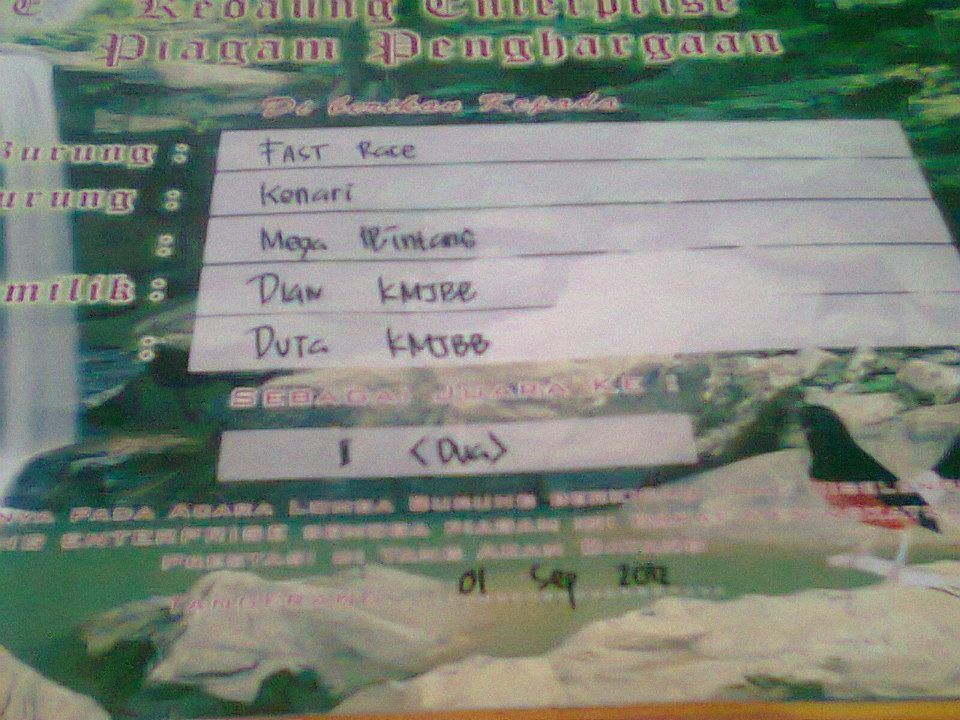 E Kedaung Enterprise
Piagam Penghargaan
Di berikan Kepada
Burung : FAST Race
urung : Kenari
: Mega Bintang
milik : DIAN KMJBB
: DUTA KMJBB
SEBAGAI JUARA KE :
(Dua)
NYA PADA ACARA LOMBA BURUNG
ENTERPRISE SEMOGA PIAGAM INI
PRESTASI DI YANG AKAN DATANG
TANGERANG 01 Sep 2012